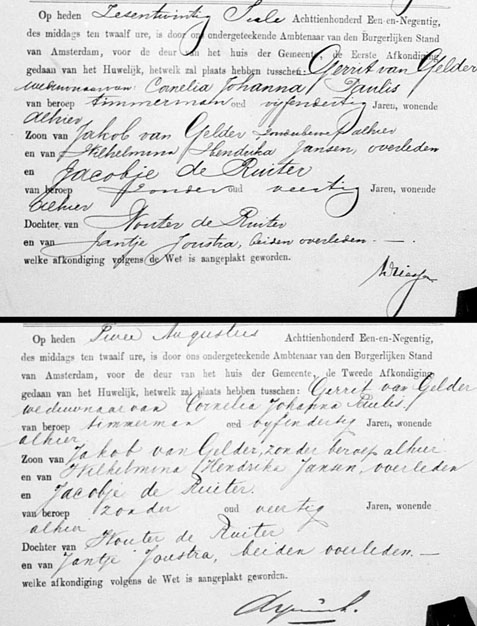 Op heden Zesentwintig Juli Achttienhonderd Een-en-Negentig,
des middags ten twaalf ure, is door ons ondergeteekende Ambtenaar van den Burgerlijken Stand
van Amsterdam, voor de deur van het huis der Gemeente, de Eerste Afkondiging
gedaan van het Huwelijk, hetwelk zal plaats hebben tusschen: Gerrit van Gelder
weduwnaar van Cornelia Johanna Paulis
van beroep timmerman oud vyfendertig Jaren, wonende
alhier
Zoon van Jakob van Gelder alhier
en van Wilhelmina Hendrika Jansen, overleden
en Jacobje de Ruiter
van beroep zonder oud veertig Jaren, wonende
alhier
Dochter van Wouter de Ruiter
en van Jantje Joustra, beiden overleden.
welke afkondiging volgens de Wet is aangeplakt geworden.
Op heden Twee Augustus Achttienhonderd Een-en-Negentig,
des middags ten twaalf ure, is door ons ondergeteekende Ambtenaar van den Burgerlijken Stand
van Amsterdam, voor de deur van het huis der Gemeente, de Tweede Afkondiging
gedaan van het Huwelijk, hetwelk zal plaats hebben tusschen: Gerrit van Gelder
weduwnaar van Cornelia Johanna Paulis,
van beroep timmerman oud vyfendertig Jaren, wonende
alhier
Zoon van Jakob van Gelder, zonder beroep alhier
en van Wilhelmina Hendrika Jansen, overleden
en Jacobje de Ruiter
van beroep zonder oud veertig Jaren, wonende
alhier
Dochter van Wouter de Ruiter
en van Jantje Joustra, beiden overleden.
welke afkondiging volgens de Wet is aangeplakt geworden.